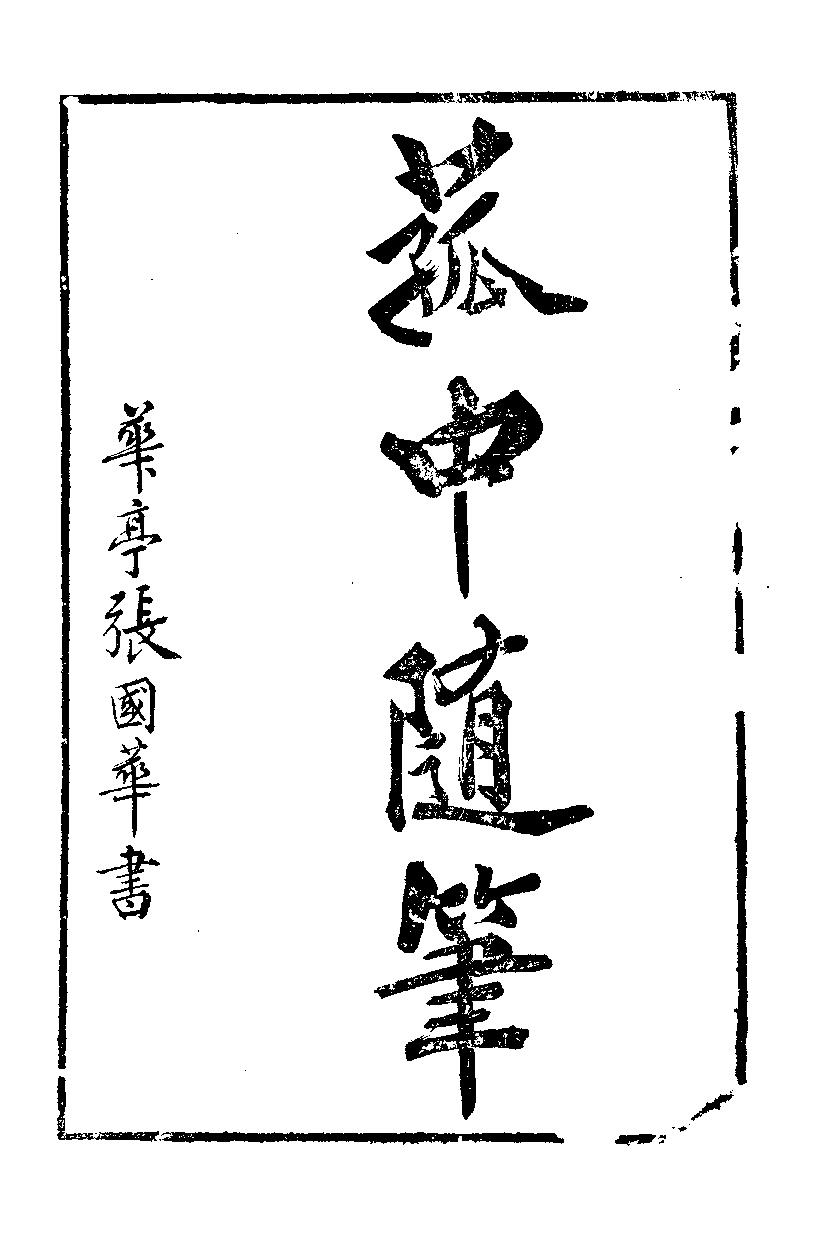 菰中随筆
華亭張國華書